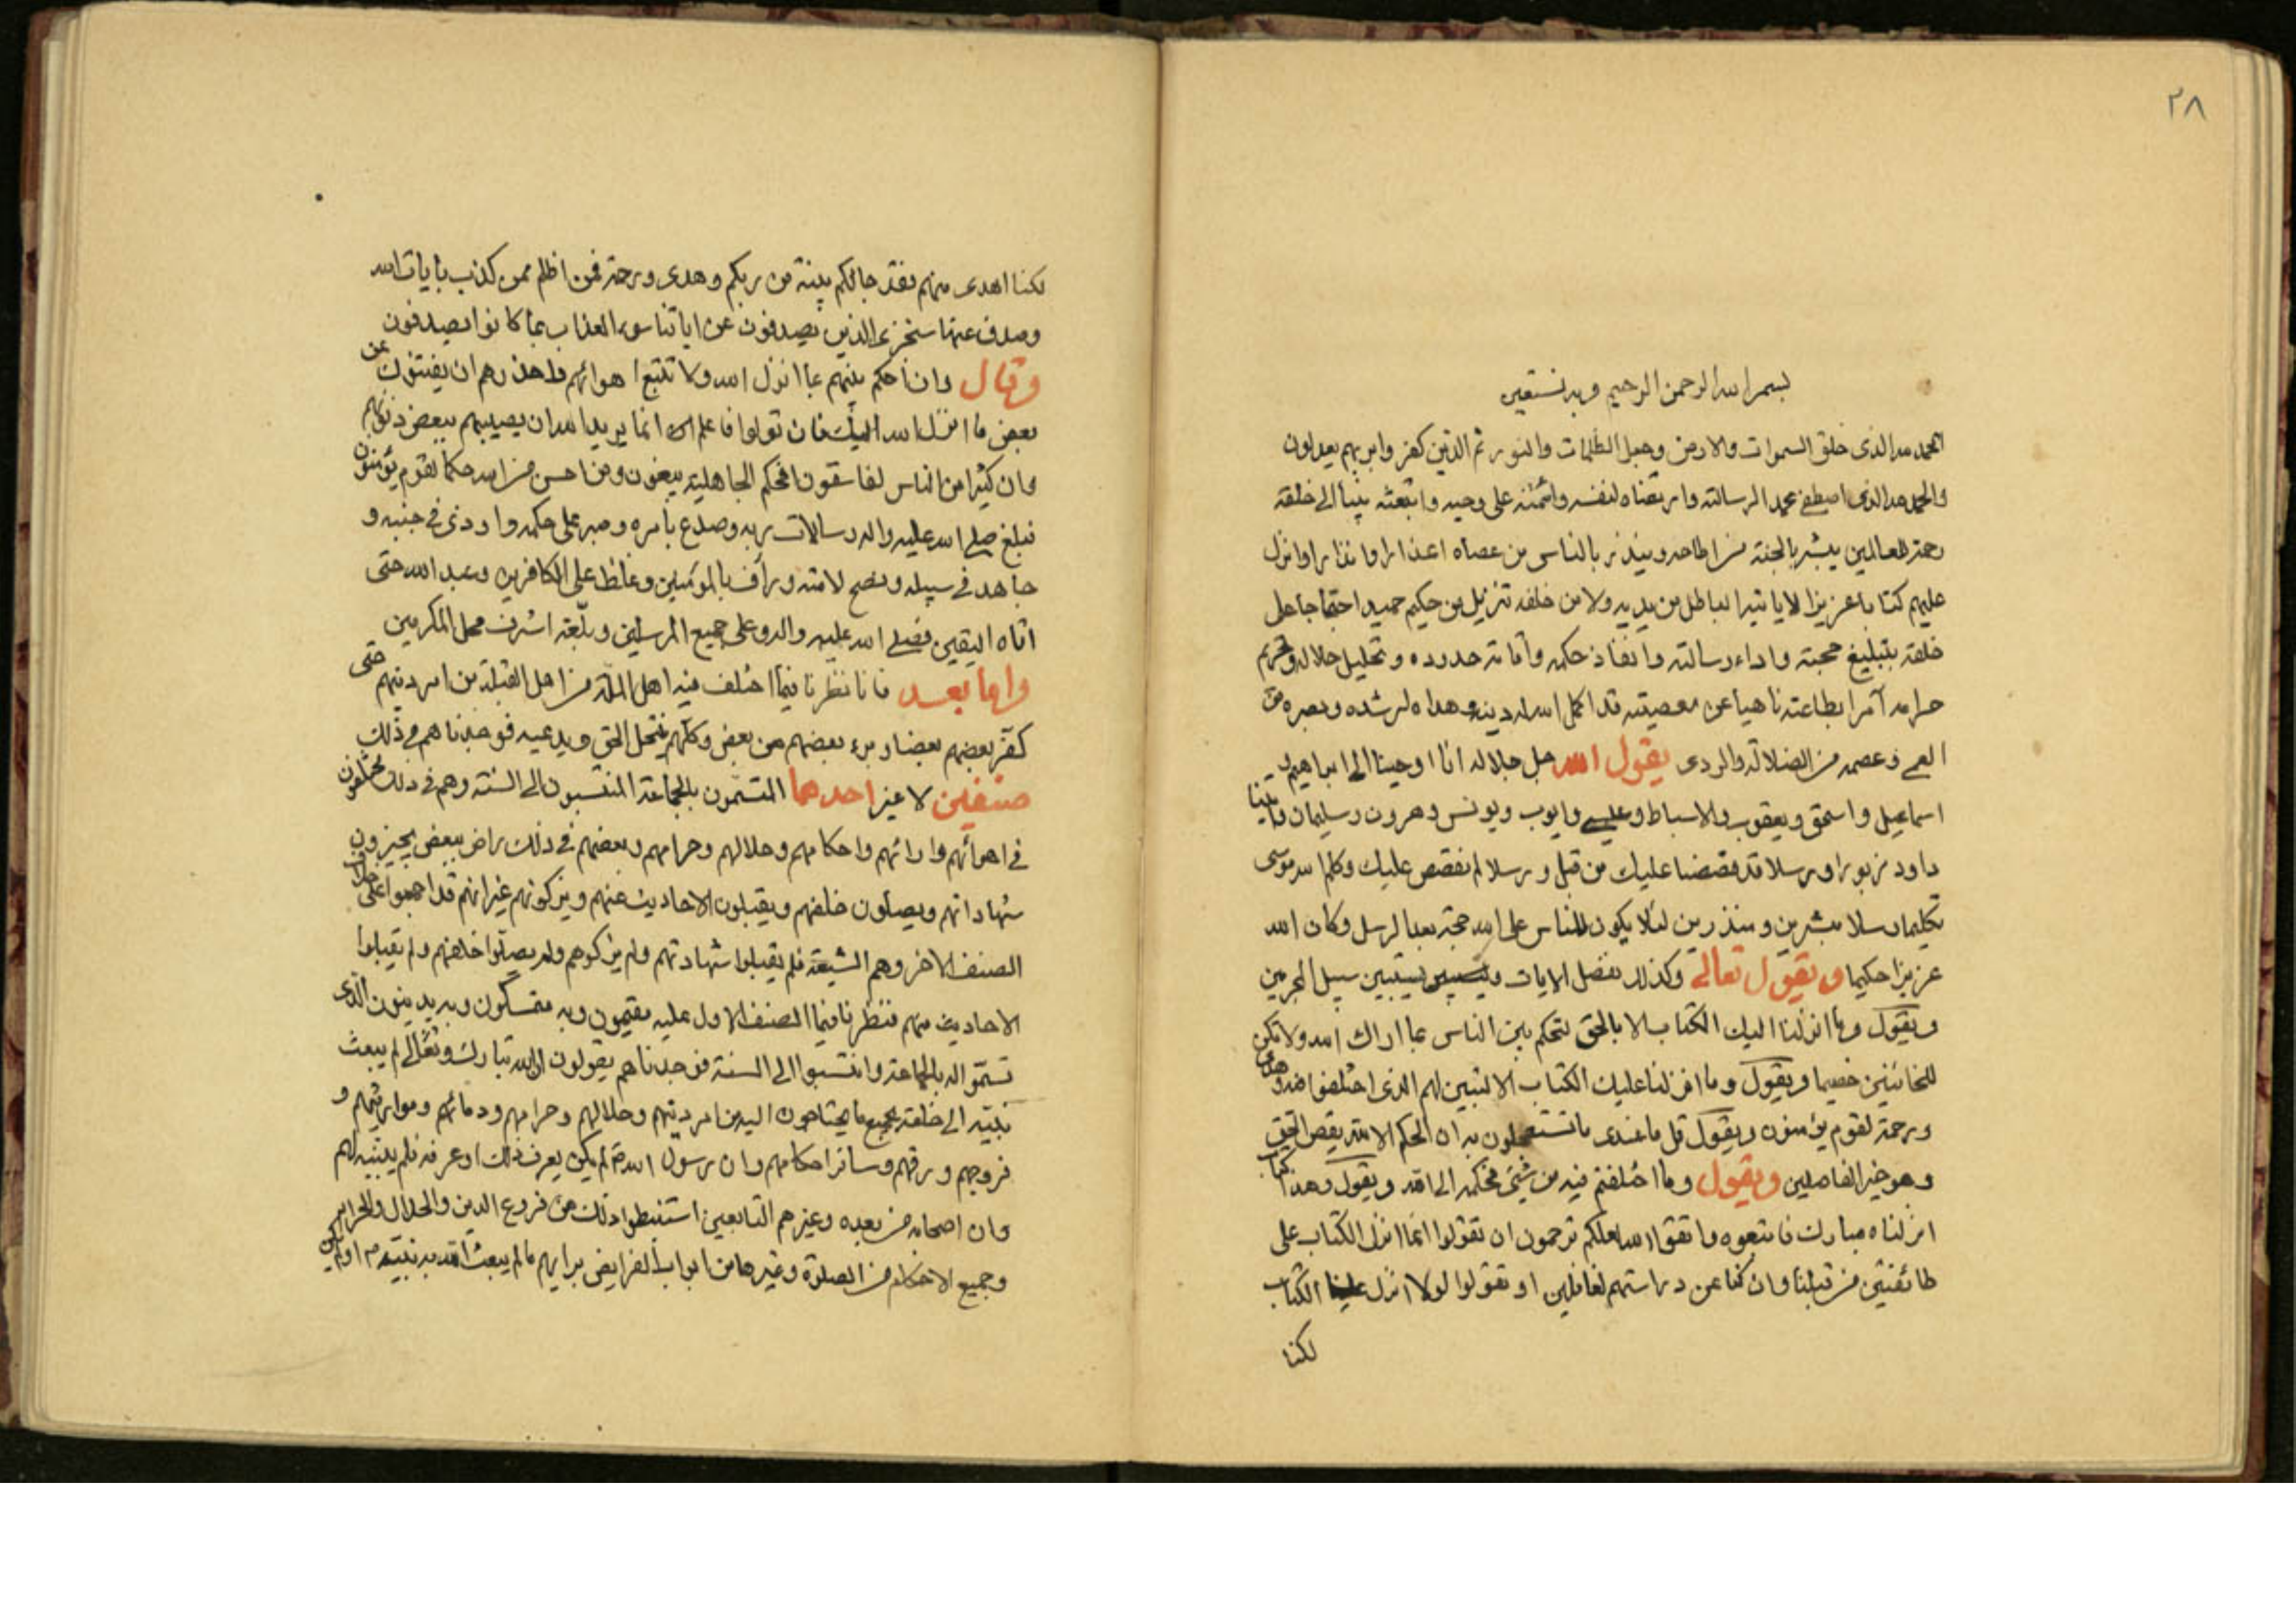 ٢٨
بسم الله الرحمن الرحيم وبه نستعين
الحمد لله الذى خلق السموات والارض وجعل الظلمات والنور ثم الذين كفروا بربهم يعدلون
والحمد لله الذى اصطفى محمدا لرسالته وارتضاه لنفسه وائتمنه على وحيه وابتعثه نبيا الى خلقه
رحمة للعالمين يبشر بالجنة من اطاعه وينذر بالناس من عصاه اعذارا وانذارا وانزل
عليهم كتابا عزيزا لا ياتيه الباطل من يديه ولا من خلفه تنزيل من حكيم حميد احتجاجا على
خلقه بتبليغ حجبته واداء رسالته وانفاذ حكمه واقامة حدوده وتحليل حلاله وتحريم
حرامه آمرا بطاعته ناهيا عن معصيته قد اكمل الله له دينه وهداه لرشده وبصره من
العمى وعصمه من الضلالة والردى يقول الله جل جلاله انا اوحينا الى ابراهيم و
اسماعيل واسحق ويعقوب والاسباط وعيسى وايوب ويونس وهرون وسليمان واتينا
داود زبورا ورسلا قد قصصنا عليك من قبل ورسلا لم نقصص عليك وكلم الله موسى
تكليما رسلا مبشرين ومنذرين لئلا يكون للناس على الله حجة بعد الرسل وكان الله
عزيزا حكيما ويقول تعالى وكذلك نفصل الايات وليستبين سبيل المجرمين
ويقول وما انزلنا اليك الكتاب الا بالحق لتحكم بين الناس بما اراك الله ولا تكن
للخائنين خصيما ويقول وما انزلنا عليك الكتاب الا لتبين لهم الذى اختلفوا فيه وهدى
ورحمة لقوم يؤمنون ويقول قل ما عندى ما تستعجلون به ان الحكم الا لله يقص الحق
وهو خير الفاصلين ويقول وما اختلفتم فيه من شئ فحكمه الى الله ويقول وهذا كتاب
انزلناه مبارك فاتبعوه واتقوا الله لعلكم ترحمون ان تقولوا انما انزل الكتاب على
طائفتين من قبلنا وان كنا عن دراستهم لغافلين او تقولوا لولا انزل علينا الكتاب
لكنا
لكنا اهدى منهم فقد جائكم بينة من ربكم وهدى ورحمة فمن اظلم ممن كذب بايات الله
وصدف عنها سنجزى الذين يصدفون عن اياتنا سوء العذاب بما كانوا يصدفون
وقال وان احكم بينهم بما انزل الله ولا تتبع اهوائهم واحذرهم ان يفتنوك عن
بعض ما انزل الله اليك فان تولوا فاعلم انما يريد الله ان يصيبهم ببعض ذنوبهم
وان كثيرا من الناس لفاسقون افحكم الجاهلية يبغون ومن احسن من الله حكما لقوم يؤمنون
فبلغ صلى الله عليه واله رسالات ربه وصدع بامره وصبر على حكمه واوذى فى جنبه و
جاهد فى سبيله ونصح لامته ورأف بالمؤمنين وغلظ على الكافرين وعبد الله حتى
اتاه اليقين فصلى الله عليه واله وعلى جميع المرسلين وبلغه اشرف محل المكرمين
واما بعد فانا نظرنا فيما اختلف فيه اهل الملة من اهل القبلة من امر دينهم حتى
كفر بعضهم بعضا وبرء بعضهم من بعض وكلهم ينتحل الحق ويدعيه فوجدناهم فى ذلك
صنفين لا غير احدهما المتسمون بالجماعة المنتسبون الى السنة وهم فى ذلك مختلفون
فى اهوائهم وارائهم واحكامهم وحلالهم وحرامهم وبعضهم فى ذلك راض ببعض يجيزون
شهاداتهم ويصلون خلفهم ويقبلون الاحاديث عنهم ويزكونهم غير انهم قد اجمعوا على خلاف
الصنف الاخر وهم الشيعة فلم يقبلوا شهادتهم ولم يزكوهم ولم يصلوا خلفهم ولم يقبلوا
الاحاديث منهم فنظرنا فيما الصنف الاول عليه مقيمون وبه متمسكون وبه يدينون الذى
تسموا له بالجماعة وانتسبوا الى السنة فوجدناهم يقولون ان الله تبارك وتعالى لم يبعث
نبيه الى خلقه بجميع ما يحتاجون اليه من امر دينهم وحلالهم وحرامهم ودمائهم ومواريثهم و
فروجهم ورقهم وسائر احكامهم وان رسول الله ص لم يكن يعرف ذلك او عرفه فلم يبينه لهم
وان اصحابه من بعده وغيرهم التابعين استنبطوا ذلك من فروع الدين والحلال والحرام
وجميع الاحكام من الصلوة وغيرها من ابواب الفرايض برايهم ما لم يبعث الله به نبيه ص او لم يكن